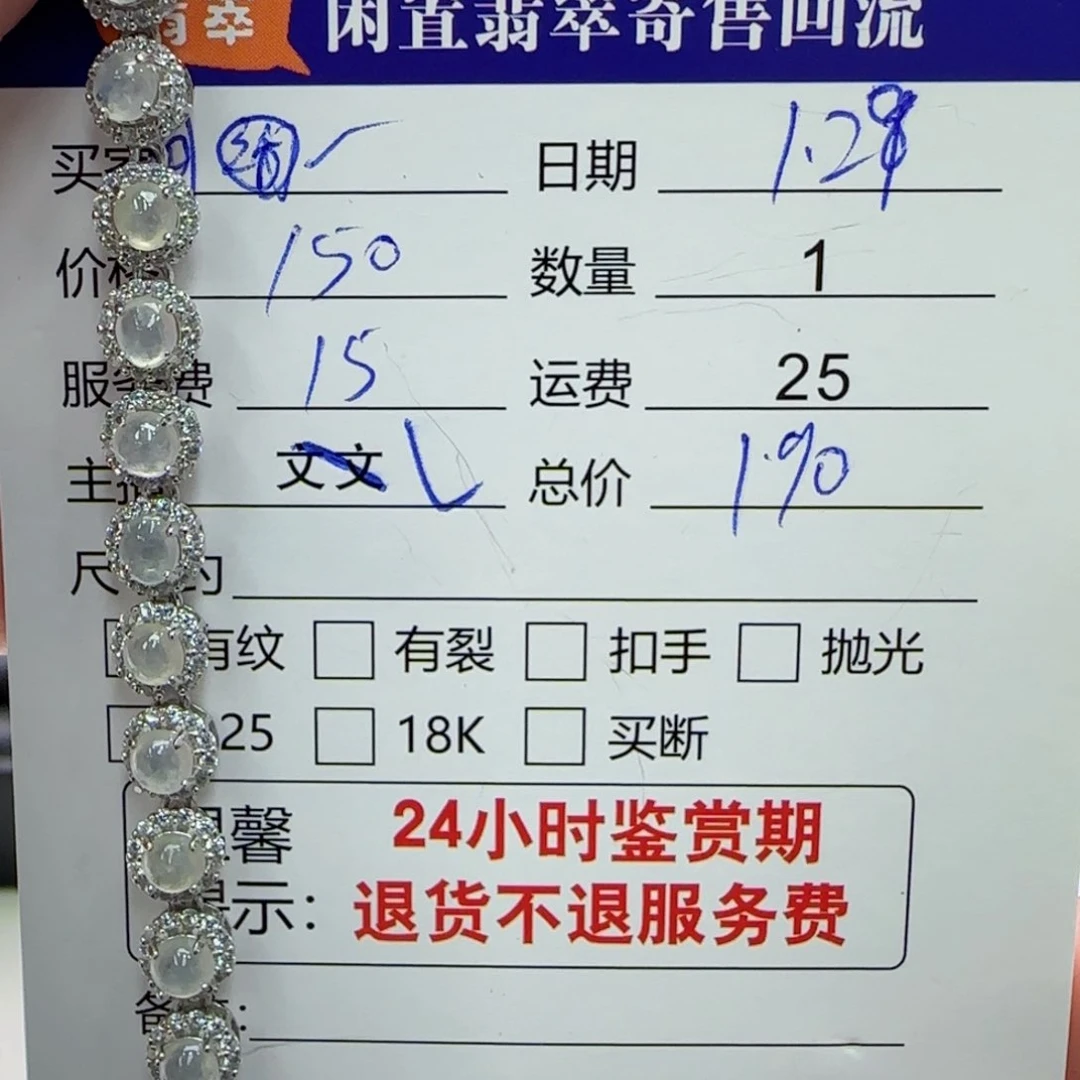 有萃 闲置翡翠寄售回流
买家 日期 1.29
价格 150 数量 1
服务费 15 运费 25
主播 文文 总价 190
尺 约
有纹 有裂 扣手 抛光
25 18K 买断
温馨 24小时鉴赏期
提示： 退货不退服务费
备注：